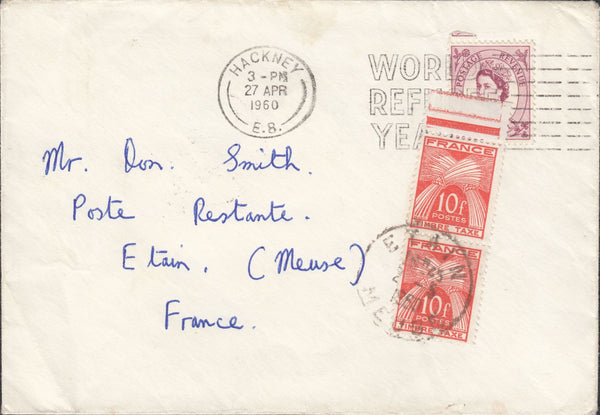 HACKNEY
3 - PM
27 APR
1960
E.8.
WORL
REFU
YEA
POSTAGE REVENUE
Mr. Don. Smith.
Poste Restante.
Etain, (Meuse)
France.
FRANCE
10f
POSTES
TIMBRE TAXE
FRANCE
10f
POSTES
TIMBRE TAXE